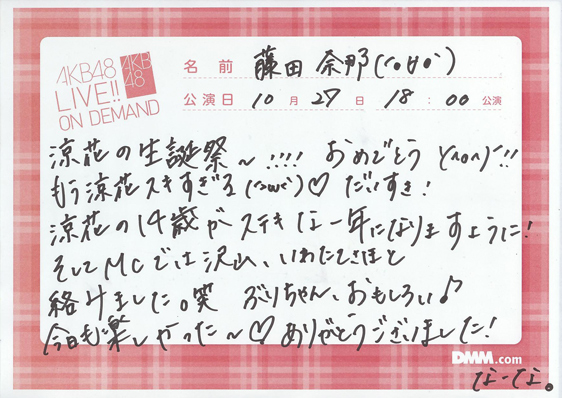 AKB48
LIVE!!
ON DEMAND
AKB
48
名前 藤田 奈那
公演日 10月27日 18:00 公演
涼花の生誕祭〜!!!! おめでとう \(^o^)/!!
もう涼花スキすぎる(>ω<)♡ だいすき!
涼花の14歳がステキな一年になりますように!
そしてMCでは沢山、いわたてぃほと
絡けました。笑 ぶりちゃん、おもしろい♪
今日も楽しかった〜♡ ありがとうございました!
DMM.com
なーな。